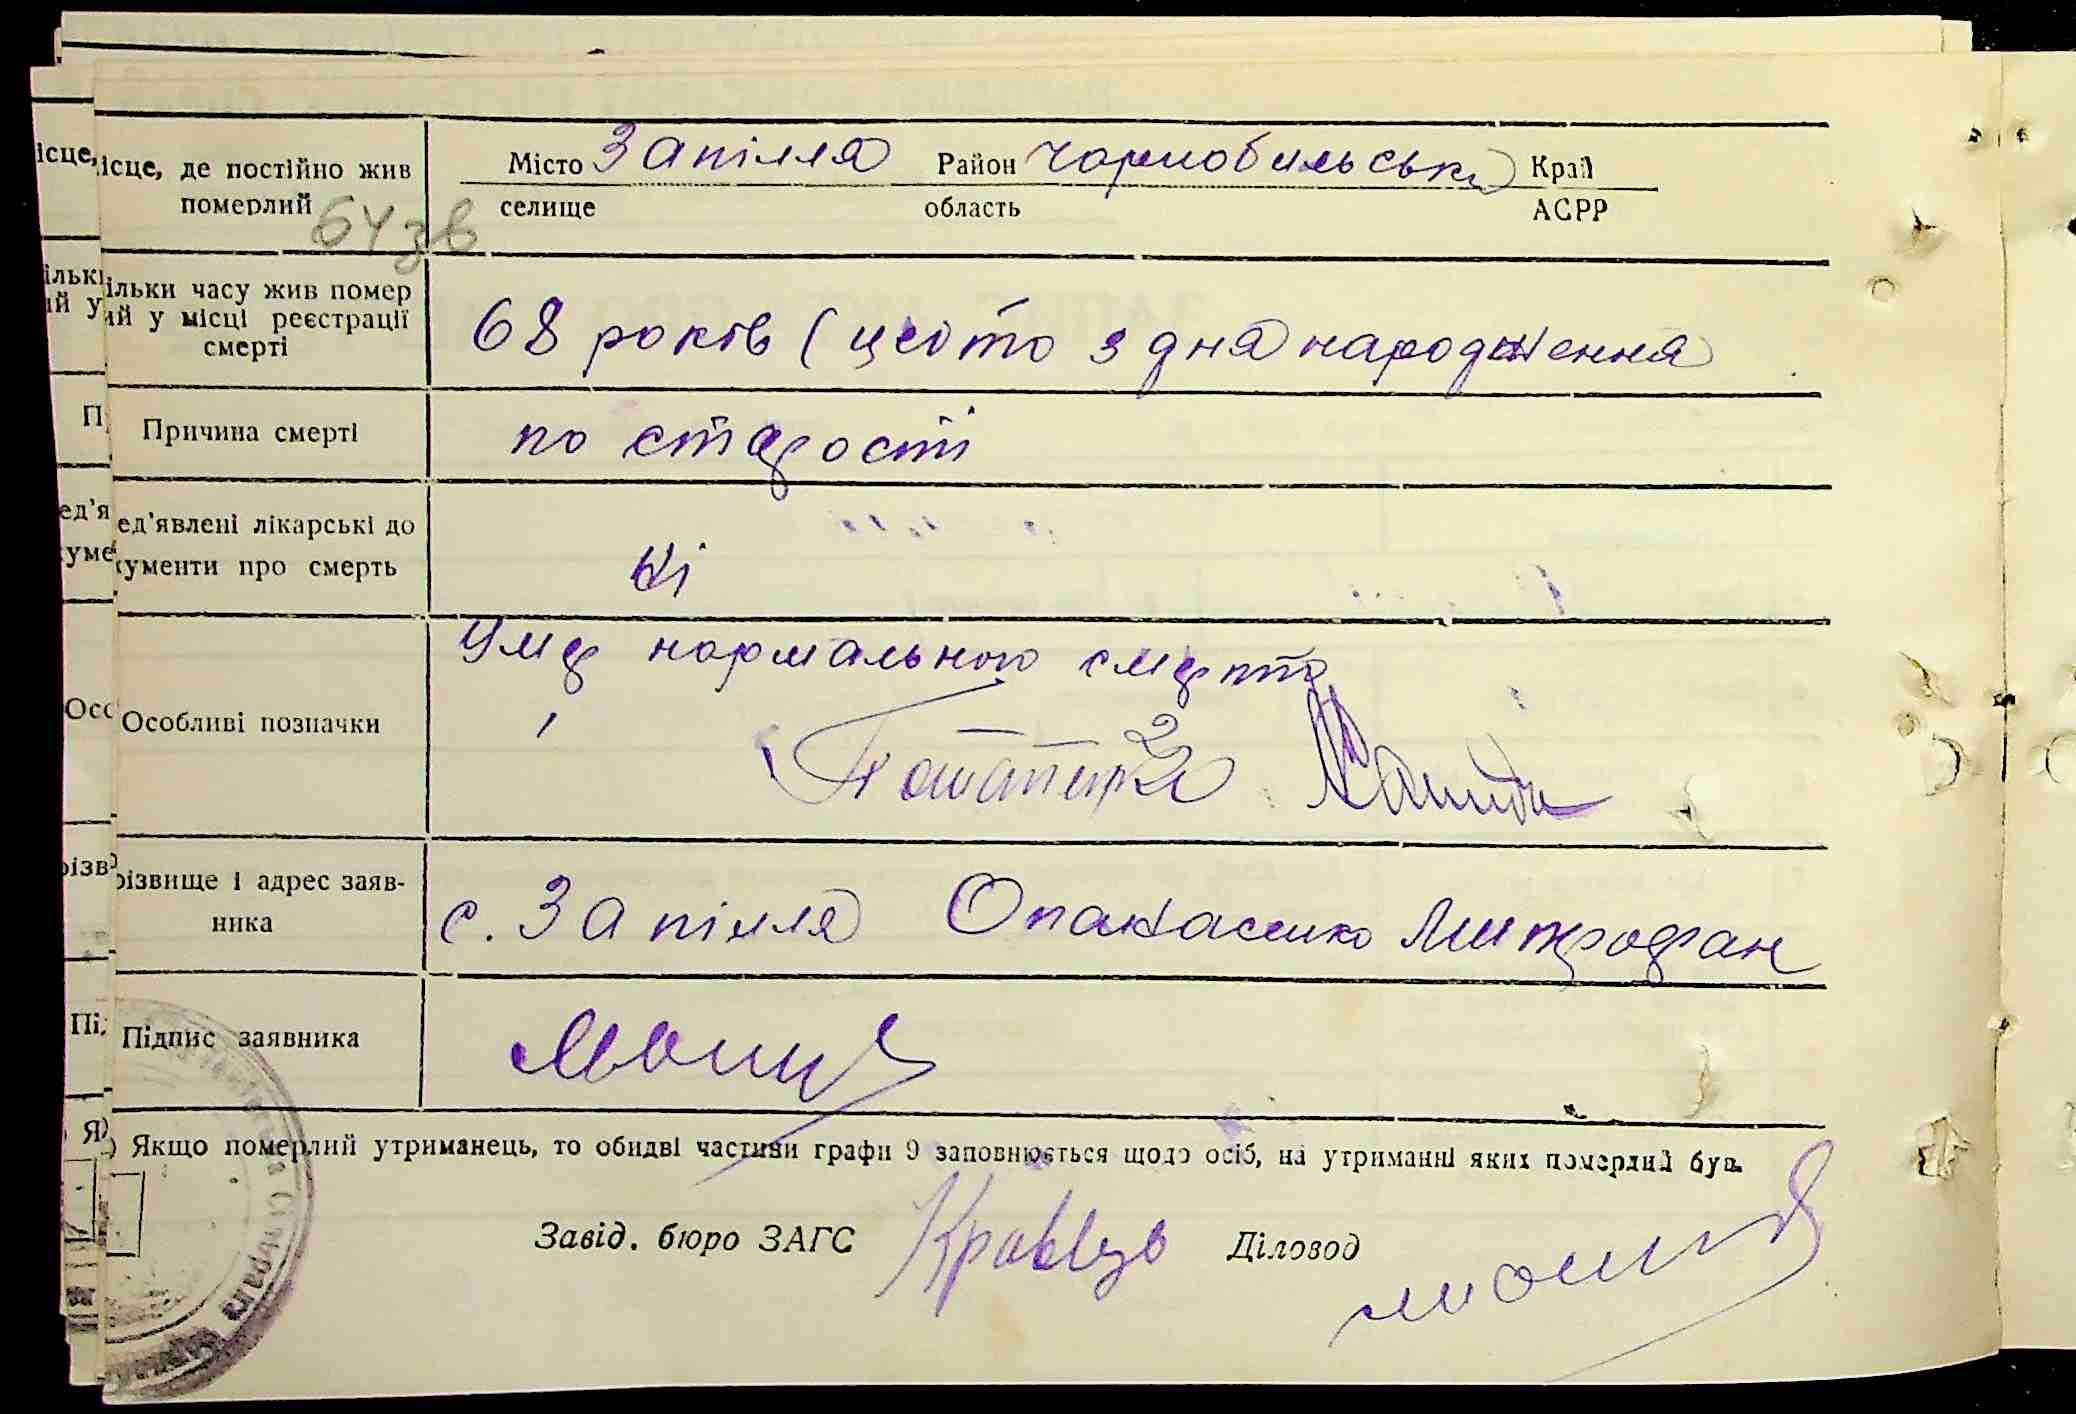 ісце, де постійно жив
померлий
64зв
Місто Запілля Район Чорнобильськ Край
селище область АСРР
ільки часу жив помер
ий у місці реєстрації
смерті
68 років ( цеото з дня народження
Причина смерті
по старості
ед'явлені лікарські до
кументи про смерть
Ні
Особливі позначки
Умер нормального смерто
різвище і адрес заяв-
ника
с. Запілля Опанасенко Митрофан
Підпис заявника
) Якщо померлий утриманець, то обидві частини графи 9 заповнюється щодо осіб, на утриманні яких померлий був.
Завід. бюро ЗАГС Кравець Діловод